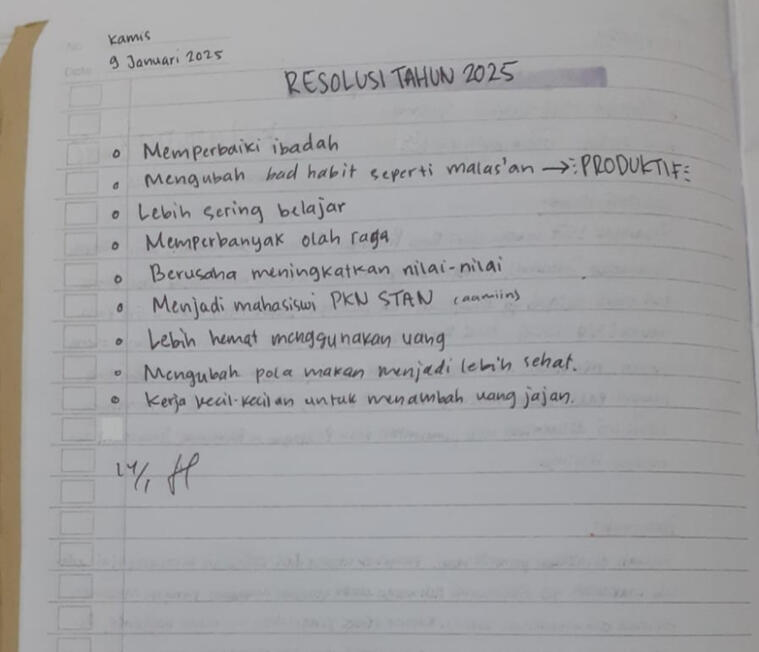 Kamis
No
Date
9 Januari 2025
RESOLUSI TAHUN 2025
Memperbaiki ibadah
Mengubah bad habit seperti malas'an → PRODUKTIF
Lebih sering belajar
Memperbanyak olah raga
Berusaha meningkatkan nilai-nilai
Menjadi mahasiswi PKN STAN (aamiin)
Lebih hemat menggunakan uang
Mengubah pola makan menjadi lebih sehat.
Kerja kecil-kecilan untuk menambah uang jajan.